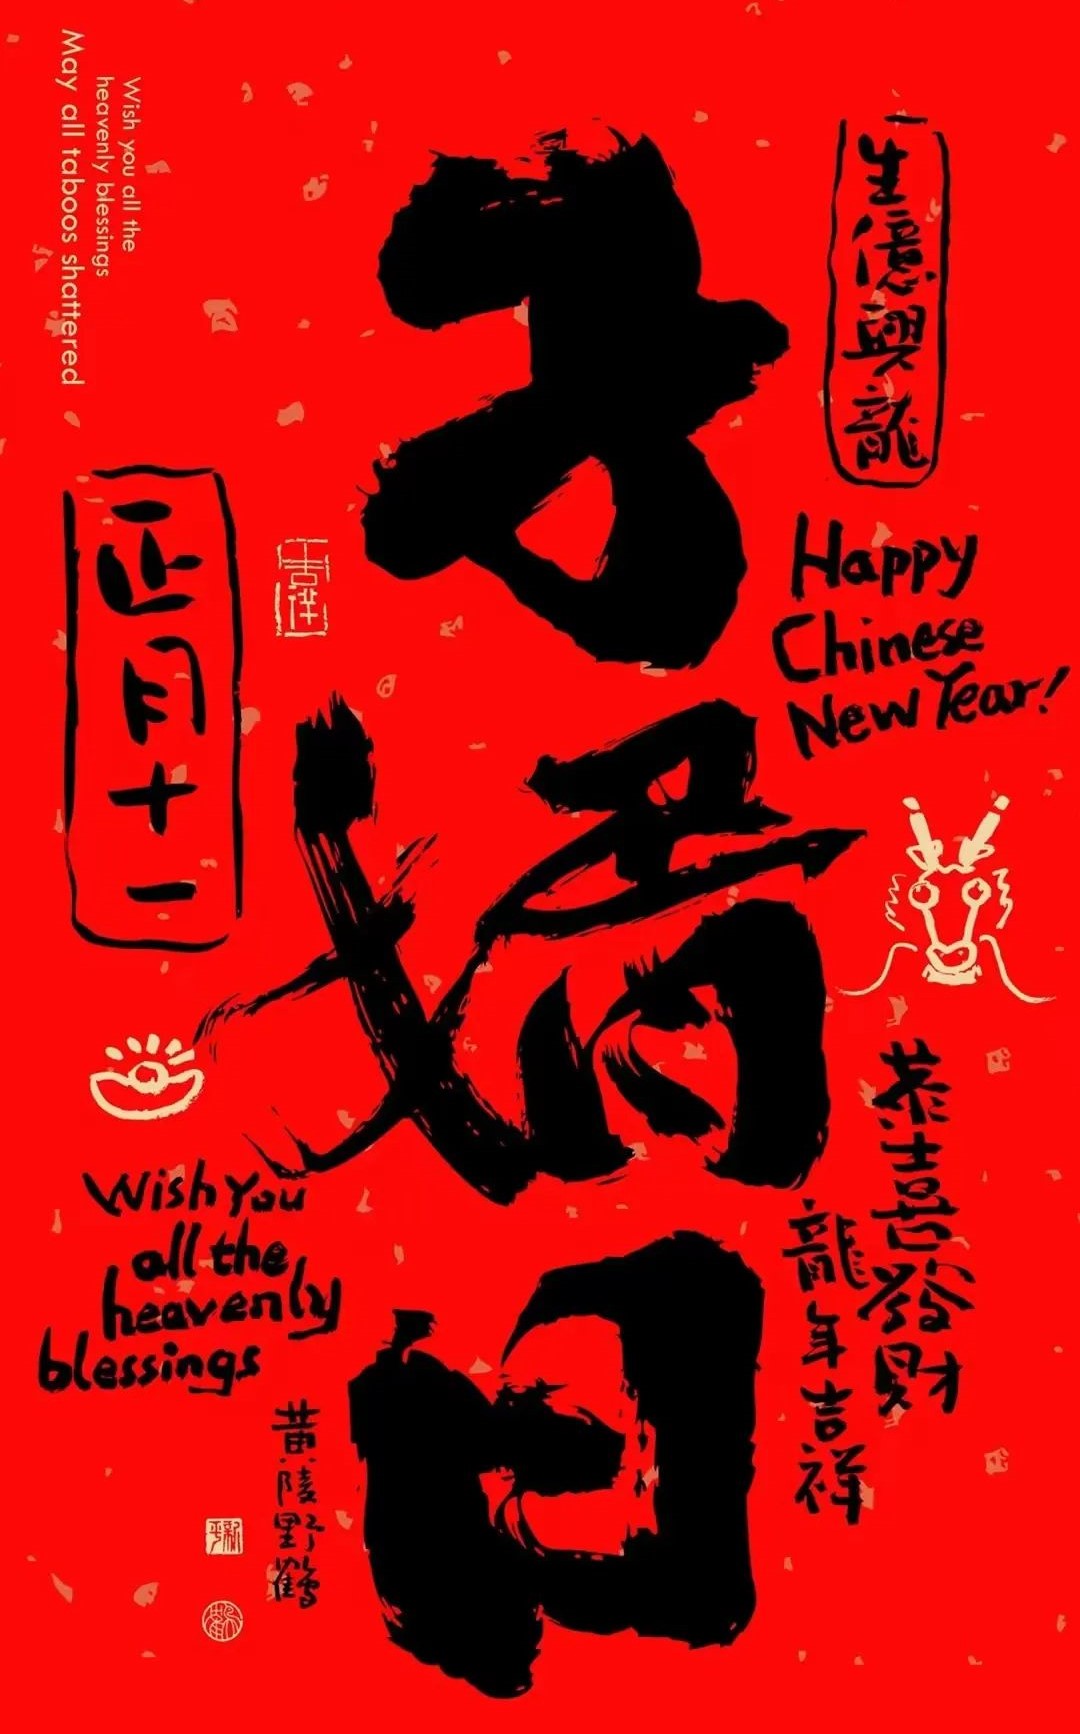 子婿日
生億興龍
Happy
Chinese
New Year!
恭喜發財
龍年吉祥
Wish you all the
heavenly blessings
May all taboos shattered
正月十一
吉祥
Wish You
all the
heavenly
blessings
黄陵野鶴